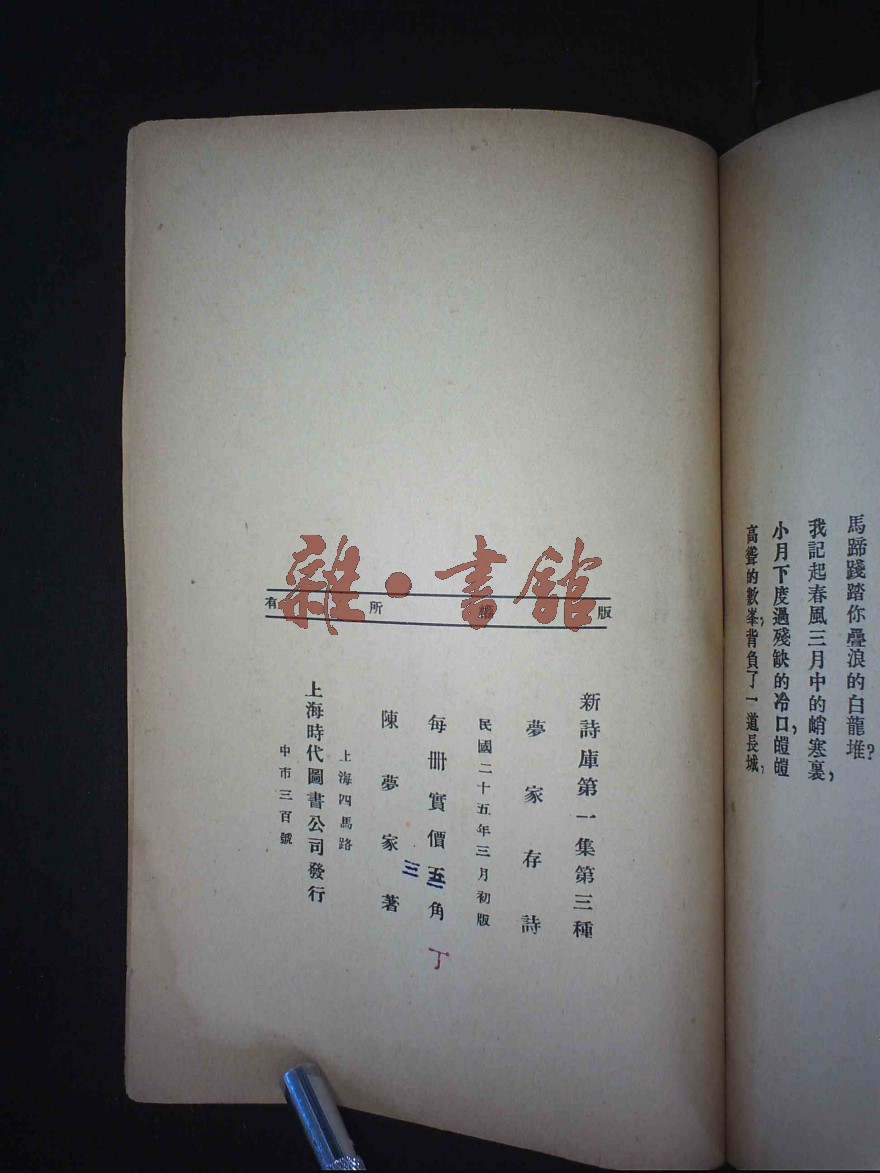 馬蹄踐踏你疊浪的白龍堆?
我記起春風三月中的峭寒裏,
小月下度過殘缺的冷口,皚皚
高聳的數峯,背負了一道長城,
版 所 有
雜·書館
新詩庫第一集第三種
夢家存詩
民國二十五年三月初版
每冊實價五角
三
丁
陳夢家著
上海四馬路
上海時代圖書公司發行
中市三百號